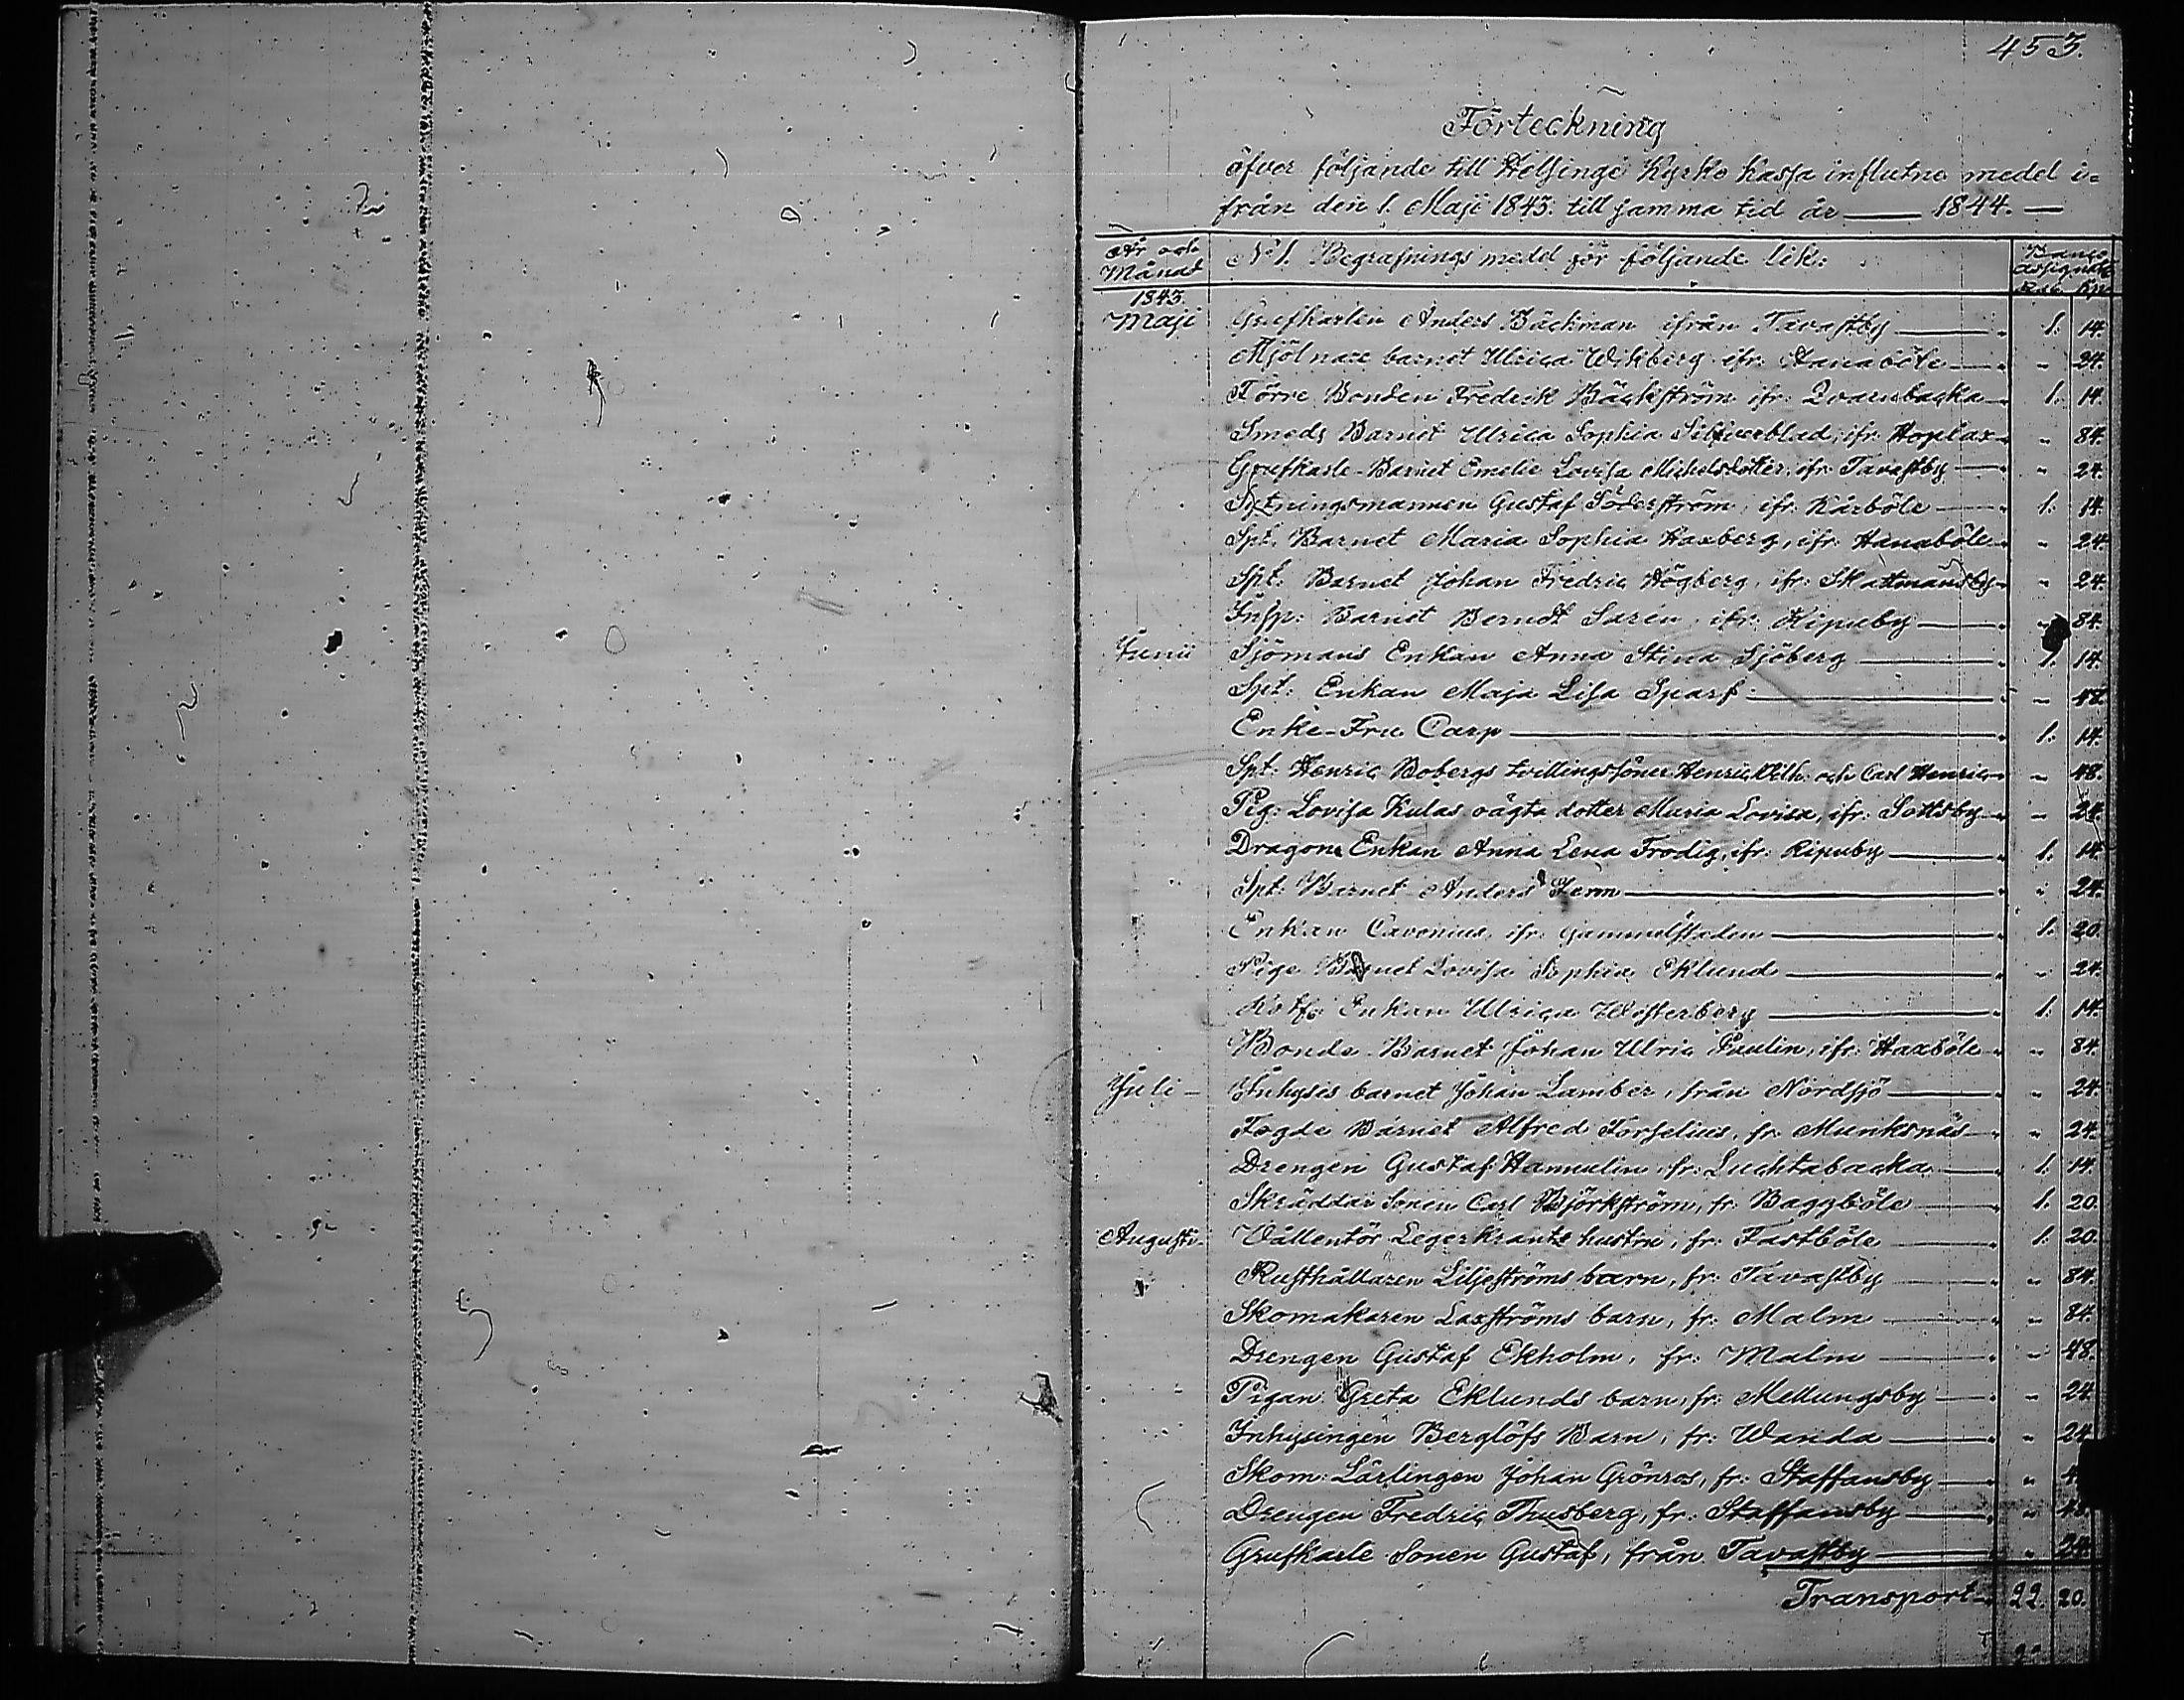 453.
Förteckning
öfver följande till Helsinge Kyrko Kassa influtne medel i=
från den 1. Maji 1843. till samma tid år — 1844. —
År och Månad
N:o 1. Begrafnings medel för följande lik:
Banco assignat:
Rub. Kop.
1843.
Maji Grufkarlen Anders Bäckman ifrån Tavastby — 1. 14.
Mjölnare barnet Ulrica Wikberg ifr: Hanaböle — " 24.
Förre Bonden Fredrik Bäckström ifr: Qvarnbacka — 1. 14.
Smeds Barnet Ulrica Sophia Silfverblad, ifr: Hoplax — " 84.
Grufkarls-Barnet Emelie Lovisa Michelsdotter, ifr: Tavastby — " 24.
Sytningsmannen Gustaf Söderström, ifr: Kårböle — 1. 14.
Spt: Barnet Maria Sophia Haxberg, ifr: Hanaböle — " 24.
Spt: Barnet Johan Fredric Högberg, ifr: Skattmansby — " 24.
Insp: Barnet Berndt Sarén, ifr: Kipuby — " 84.
Junii Sjömans Enkan Anna Stina Sjöberg — 1. 14.
Spt: Enkan Maja Lisa Sparf — " 48.
Enke-Fru Carp — 1. 14.
Spt: Henric Bobergs tvillingssöner Henric Vilh. och Carl Henric — " 48.
Pig: Lovisa Kulas oägta dotter Maria Lovisa, ifr: Sottsby — " 24.
Dragone Enkan Anna Lena Frodig, ifr: Kipuby — 1. 14.
Spt: Barnet Anders Ferm — " 24.
Enkan Cavonius, ifr: Gammelstaden — 1. 20.
Pige Barnet Lovisa Sophia Eklund — " 24.
Enkan Ulrica Westerberg — 1. 14.
Bonde Barnet Johan Ulric Paulin, ifr: Haxböle — " 84.
Juli — Inhysis barnet Johan Lamber, från Nordsjö — " 24.
Fogde Barnet Alfred Forselius, fr: Munksnäs — " 24.
Drengen Gustaf Hannulin, fr: Luchtabacka — 1. 14.
Skräddar Sonen Carl Björkström, fr: Baggböle — 1. 20.
Augusti. Vållentör Legerkrantz hustru, fr: Fastböle — 1. 20.
Rusthållaren Liljeströms barn, fr: Tavastby — " 84.
Skomakaren Laxströms barn, fr: Malm — " 84.
Drengen Gustaf Ekholm, fr: Malm — " 48.
Pigan Greta Eklunds barn, fr: Mellungsby — " 24.
Inhysingen Berglöfs Barn, fr: Wanda — " 24.
Skom: Lärlingen Johan Grönros, fr: Staffansby — " 4
Drengen Fredric Thusberg, fr: Staffansby — " 48.
Grufkarls Sonen Gustaf, från Tavastby — " 24.
Transport — 22. 20.